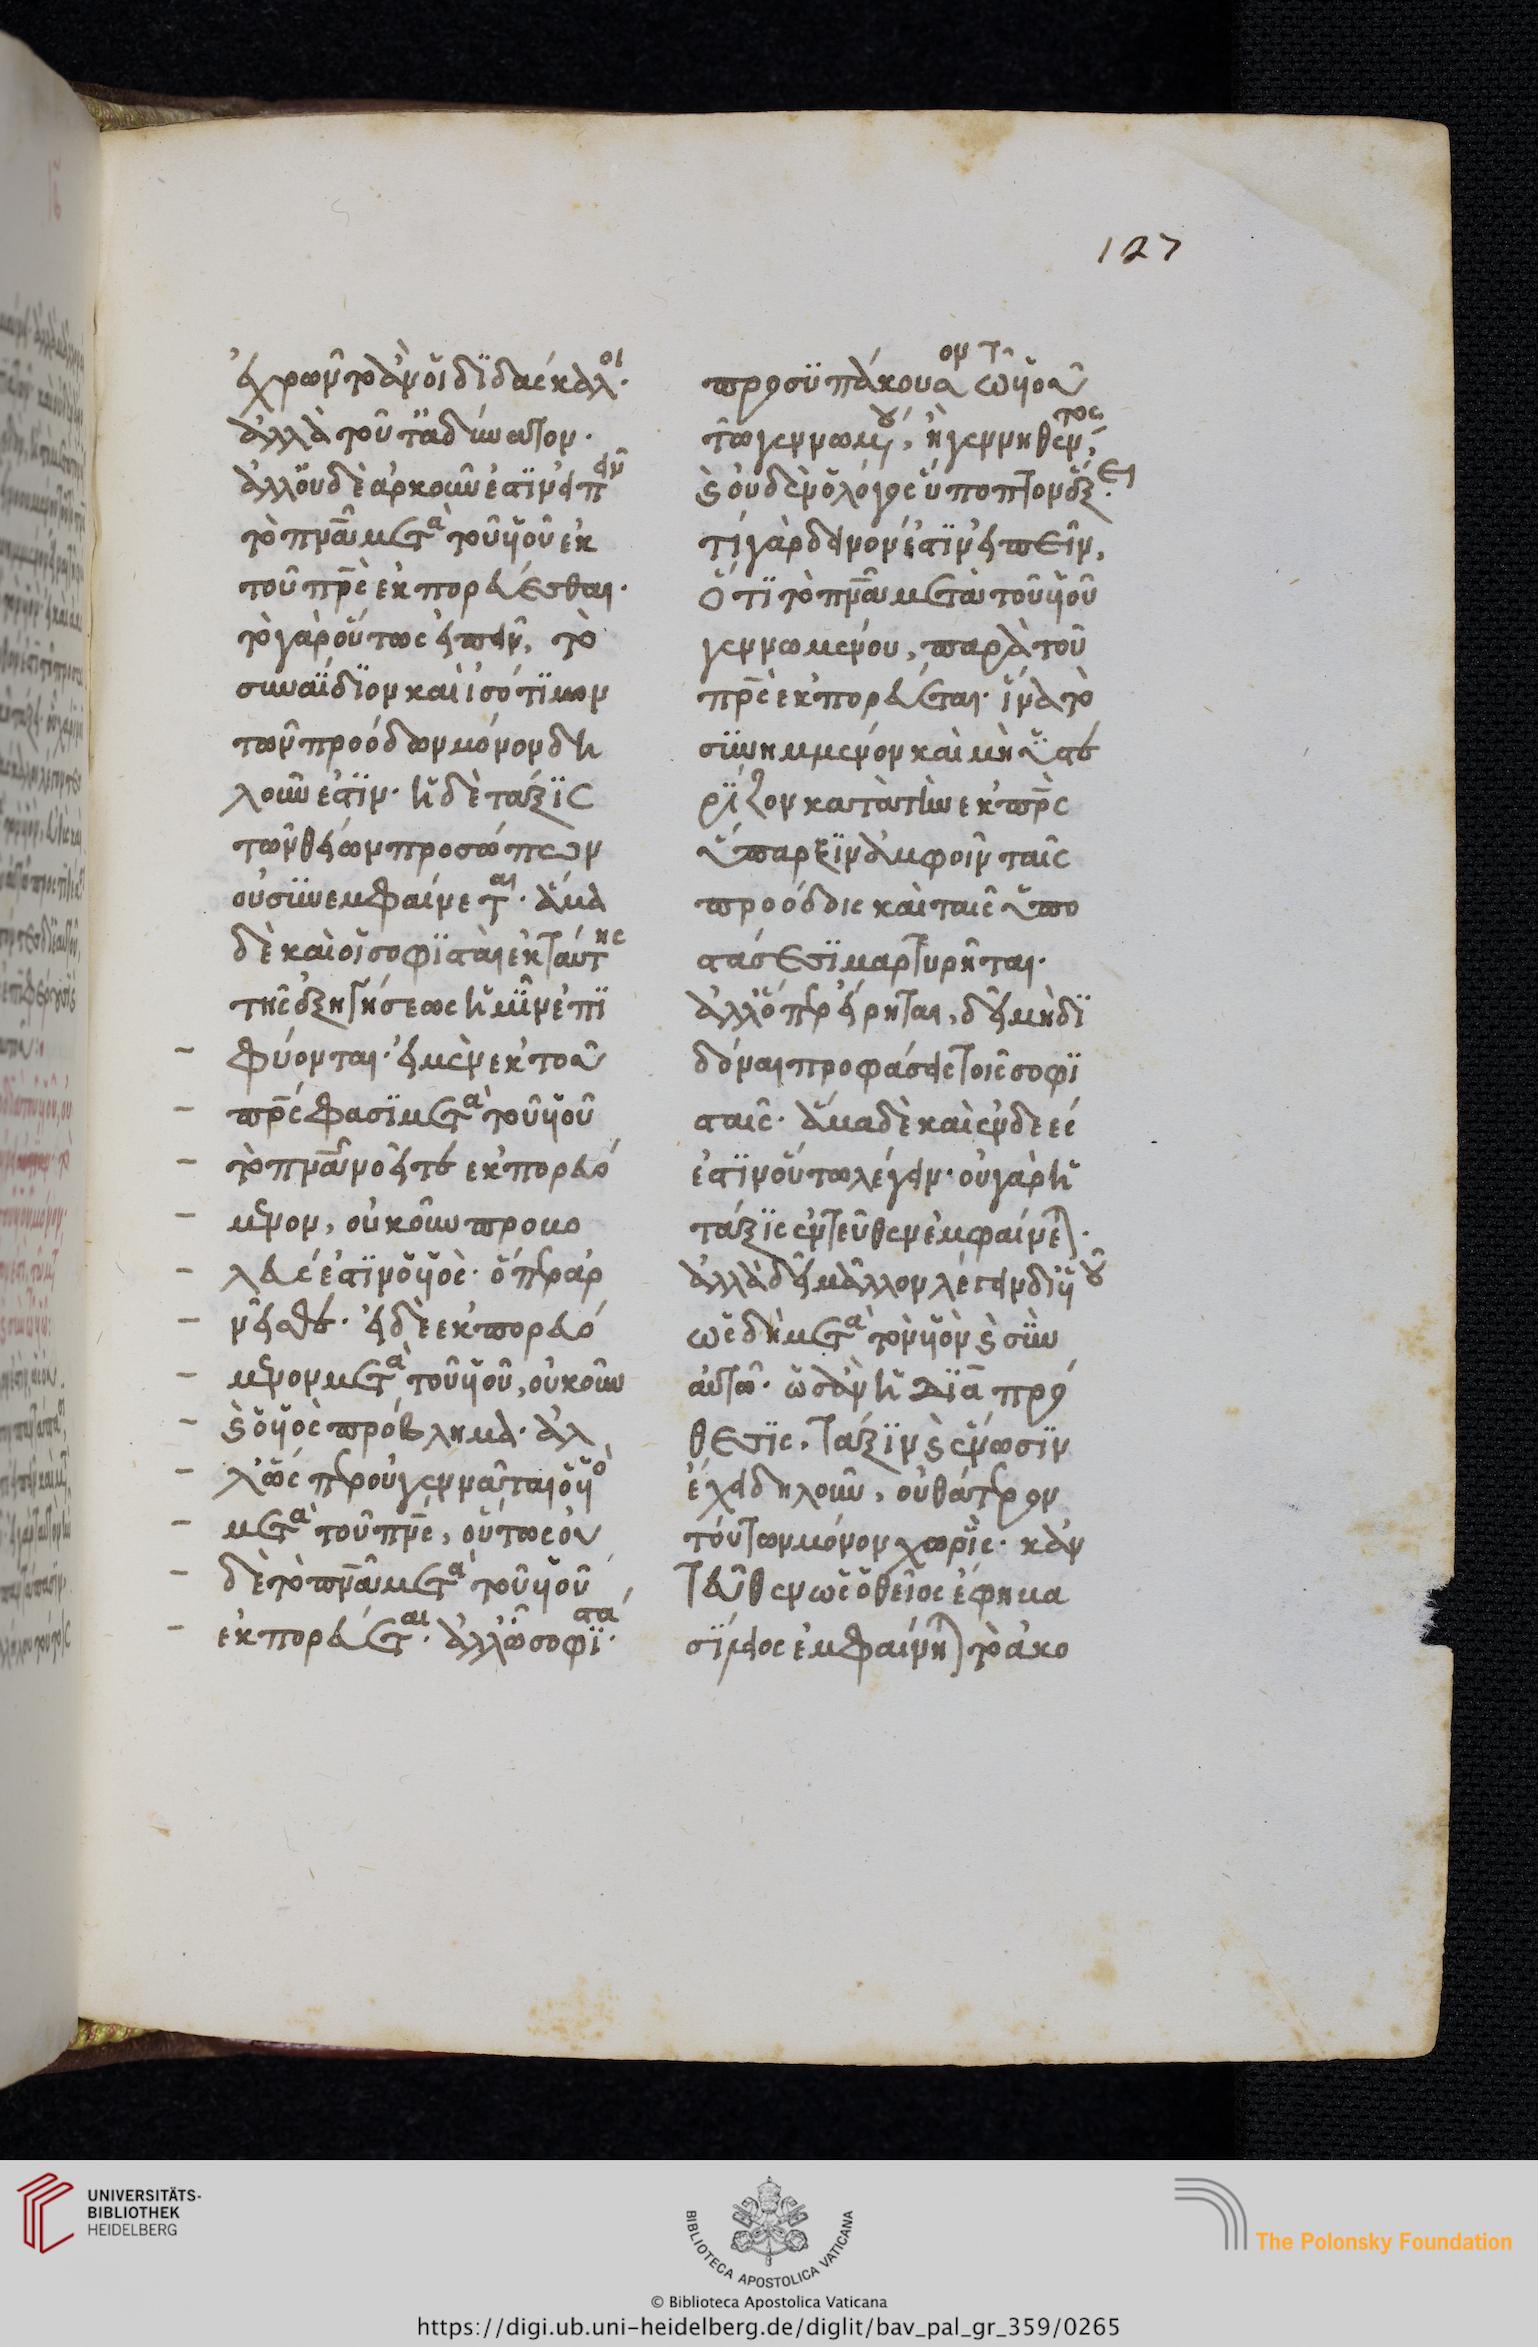 127
ἐχρῶντο ἂν οἱ διδάσκαλοι·
ἀλλὰ τοῦτ' ἀδύνατον·
ἀλλ' οὐδὲ ἀρκοῦν ἐστιν εἰπεῖν
τὸ πνᾶ μετὰ τοῦ υἱοῦ ἐκ
τοῦ πρς ἐκπορεύεσθαι·
τὸ γὰρ οὕτως εἰπεῖν, τὸ
συναΐδιον καὶ ἰσότιμον
τῶν προόδων μόνον δη
λοῦν ἐστιν· ἡ δὲ τάξις
τῶν θείων προσώπων
οὐ συνεμφαίνεται· ἅμα
δὲ καὶ οἱ σοφισταὶ ἐκ ταύτης
τῆς ἐξηγήσεως ἡμῖν ἐπι
φύονται· εἰ μὲν ἐκ τοῦ
πρς φασι μετὰ τοῦ υἱοῦ
τὸ πνᾶ νοεῖτε ἐκπορευό
μενον, οὐκοῦν προβο
λεύς ἐστιν ὁ υἱός· ὅπερ ἀρ
νεῖσθε· εἰ δὲ ἐκπορευό
μενον μετὰ τοῦ υἱοῦ, οὐκοῦν
καὶ ὁ υἱὸς πρόβλημα· ἀλ
λ' ὥσπερ οὐ γεννᾶται ὁ υἱὸς
μετὰ τοῦ πνς, οὕτως οὐ
δὲ τὸ πνᾶ μετὰ τοῦ υἱοῦ
ἐκπορεύεται· ἀλλ' ὦ σοφισταί·
προσυπάκουστον τῷ υἱοῦ
τῶ γεννωμένου, ἢ γεννηθέντος·
καὶ οὐδὲν ὁ λόγος ὕποπτον ἕξει·
τί γὰρ δεινόν ἐστιν εἰπεῖν,
ὅτι τὸ πνᾶ μετὰ τοῦ υἱοῦ
γεννωμένου, παρὰ τοῦ
πρς ἐκπορεύεται· ἵνα τὸ
συνημμένον καὶ μὴ ὑστε
ρίζον κατὰ τὴν ἐκ πρς
ὕπαρξιν ἀμφοῖν ταῖς
προόδοις καὶ ταῖς ὑπο
στάσεσι μαρτυρῆται·
ἀλλ' ὅπερ εἴρηται, δεῖ μὴ δι
δόναι προφάσεις τοῖς σοφι
σταῖς· ἅμα δὲ καὶ ἐνδεές
ἐστιν οὕτω λέγειν· οὐ γὰρ ἡ
τάξις ἐντεῦθεν ἐμφαίνεται·
ἀλλὰ δεῖ μᾶλλον λέγειν δι' υἱοῦ
ὡς δὴ μετὰ τὸν υἱὸν καὶ σὺν
αὐτῶ· ὡς ἂν ἡ διὰ πρό
θεσις, τάξιν καὶ ἕνωσιν
ἔχει δηλοῦν, οὐ θάτερον
τούτων μόνον χωρίς· κἀν
τεῦθεν ὡς ὁ θεῖος ἔφη μα
ξιμος ἐμφαίνηται τὸ ἀκο
UNIVERSITÄTS-
BIBLIOTHEK
HEIDELBERG
BIBLIOTECA APOSTOLICA VATICANA
The Polonsky Foundation
© Biblioteca Apostolica Vaticana
https://digi.ub.uni-heidelberg.de/diglit/bav_pal_gr_359/0265